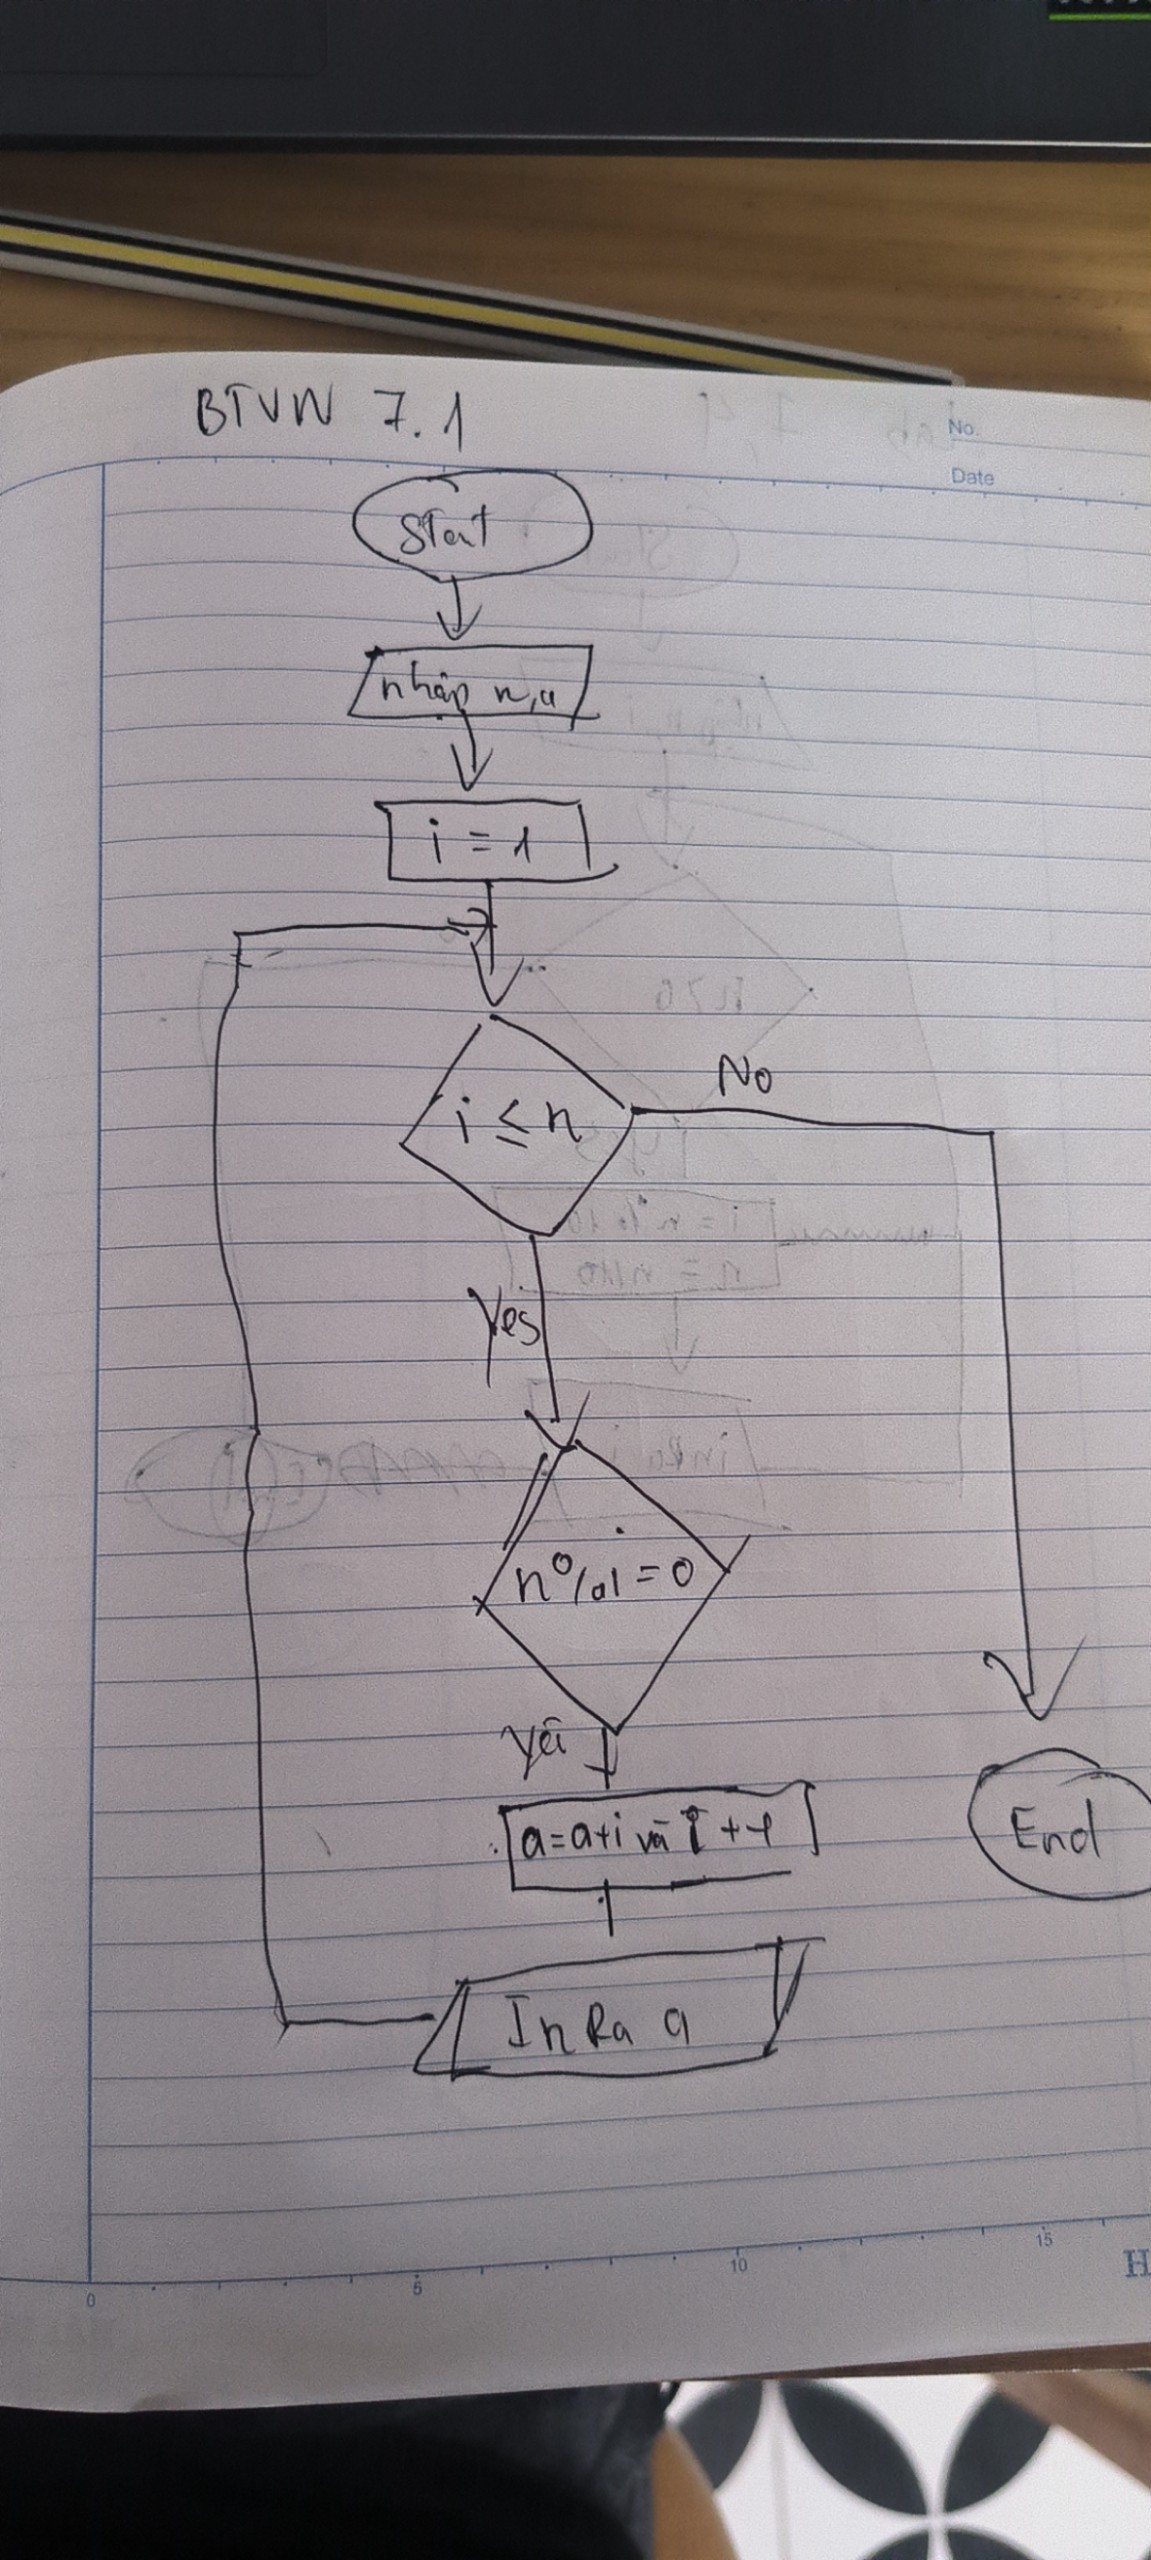 BTVN 7.1
No.
Date
Start
nhập n,a
i = 1
i ≤ n
No
Yes
n%i = 0
a=a+i và i +1
End
In Ra a
0
5
10
15
H